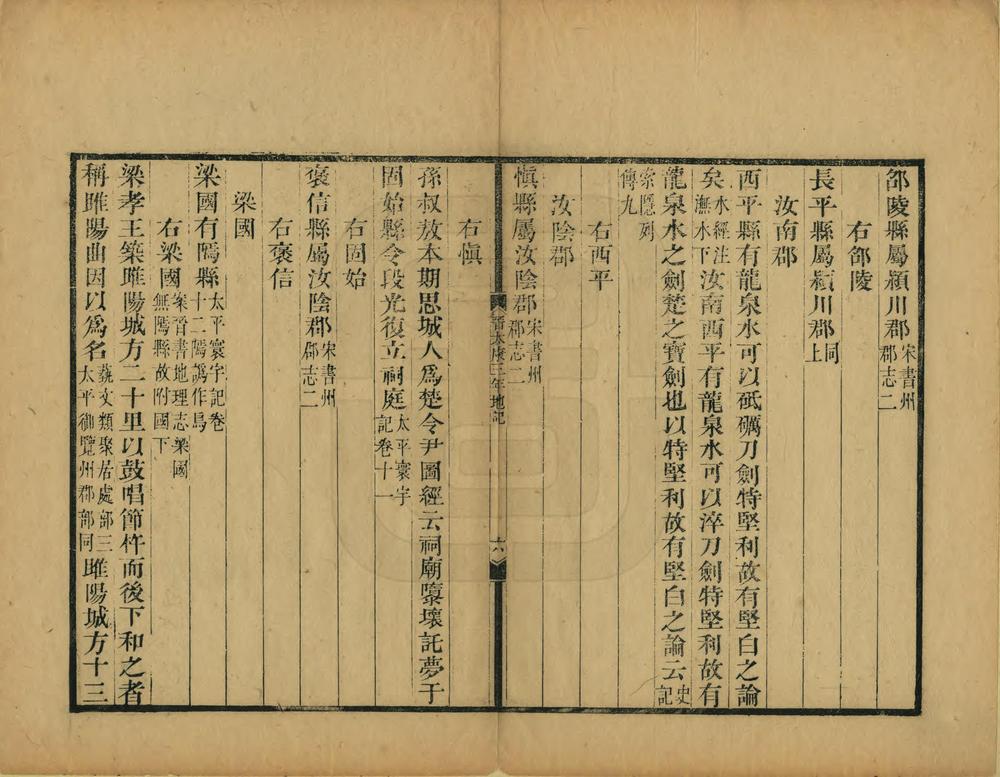 郃陵縣屬潁川郡宋書州郡志二
右郃陵
長平縣屬潁川郡同上
汝南郡
西平縣有龍泉水可以砥礪刀劍特堅利故有堅白之論
矣水經注潕水下汝南西平有龍泉水可以淬刀劍特堅利故有
龍泉水之劍楚之寶劍也以特堅利故有堅白之論云史記
索隱列傳九
右西平
汝陰郡
愼縣屬汝陰郡宋書州郡志二
晉太康三年地記
六
右愼
孫叔敖本期思城人爲楚令尹圖經云祠廟隳壞託夢于
固始縣令段光復立祠庭太平寰宇記卷十一
右固始
褒信縣屬汝陰郡宋書州郡志二
右褒信
梁國
梁國有隖縣太平寰宇記卷十二隖譌作鳥
右梁國案晉書地理志梁國無隖縣故附國下
梁孝王築雎陽城方二十里以鼓唱節杵而後下和之者
稱雎陽曲因以爲名蓺文類聚居處部三太平御覽州郡部同雎陽城方十三